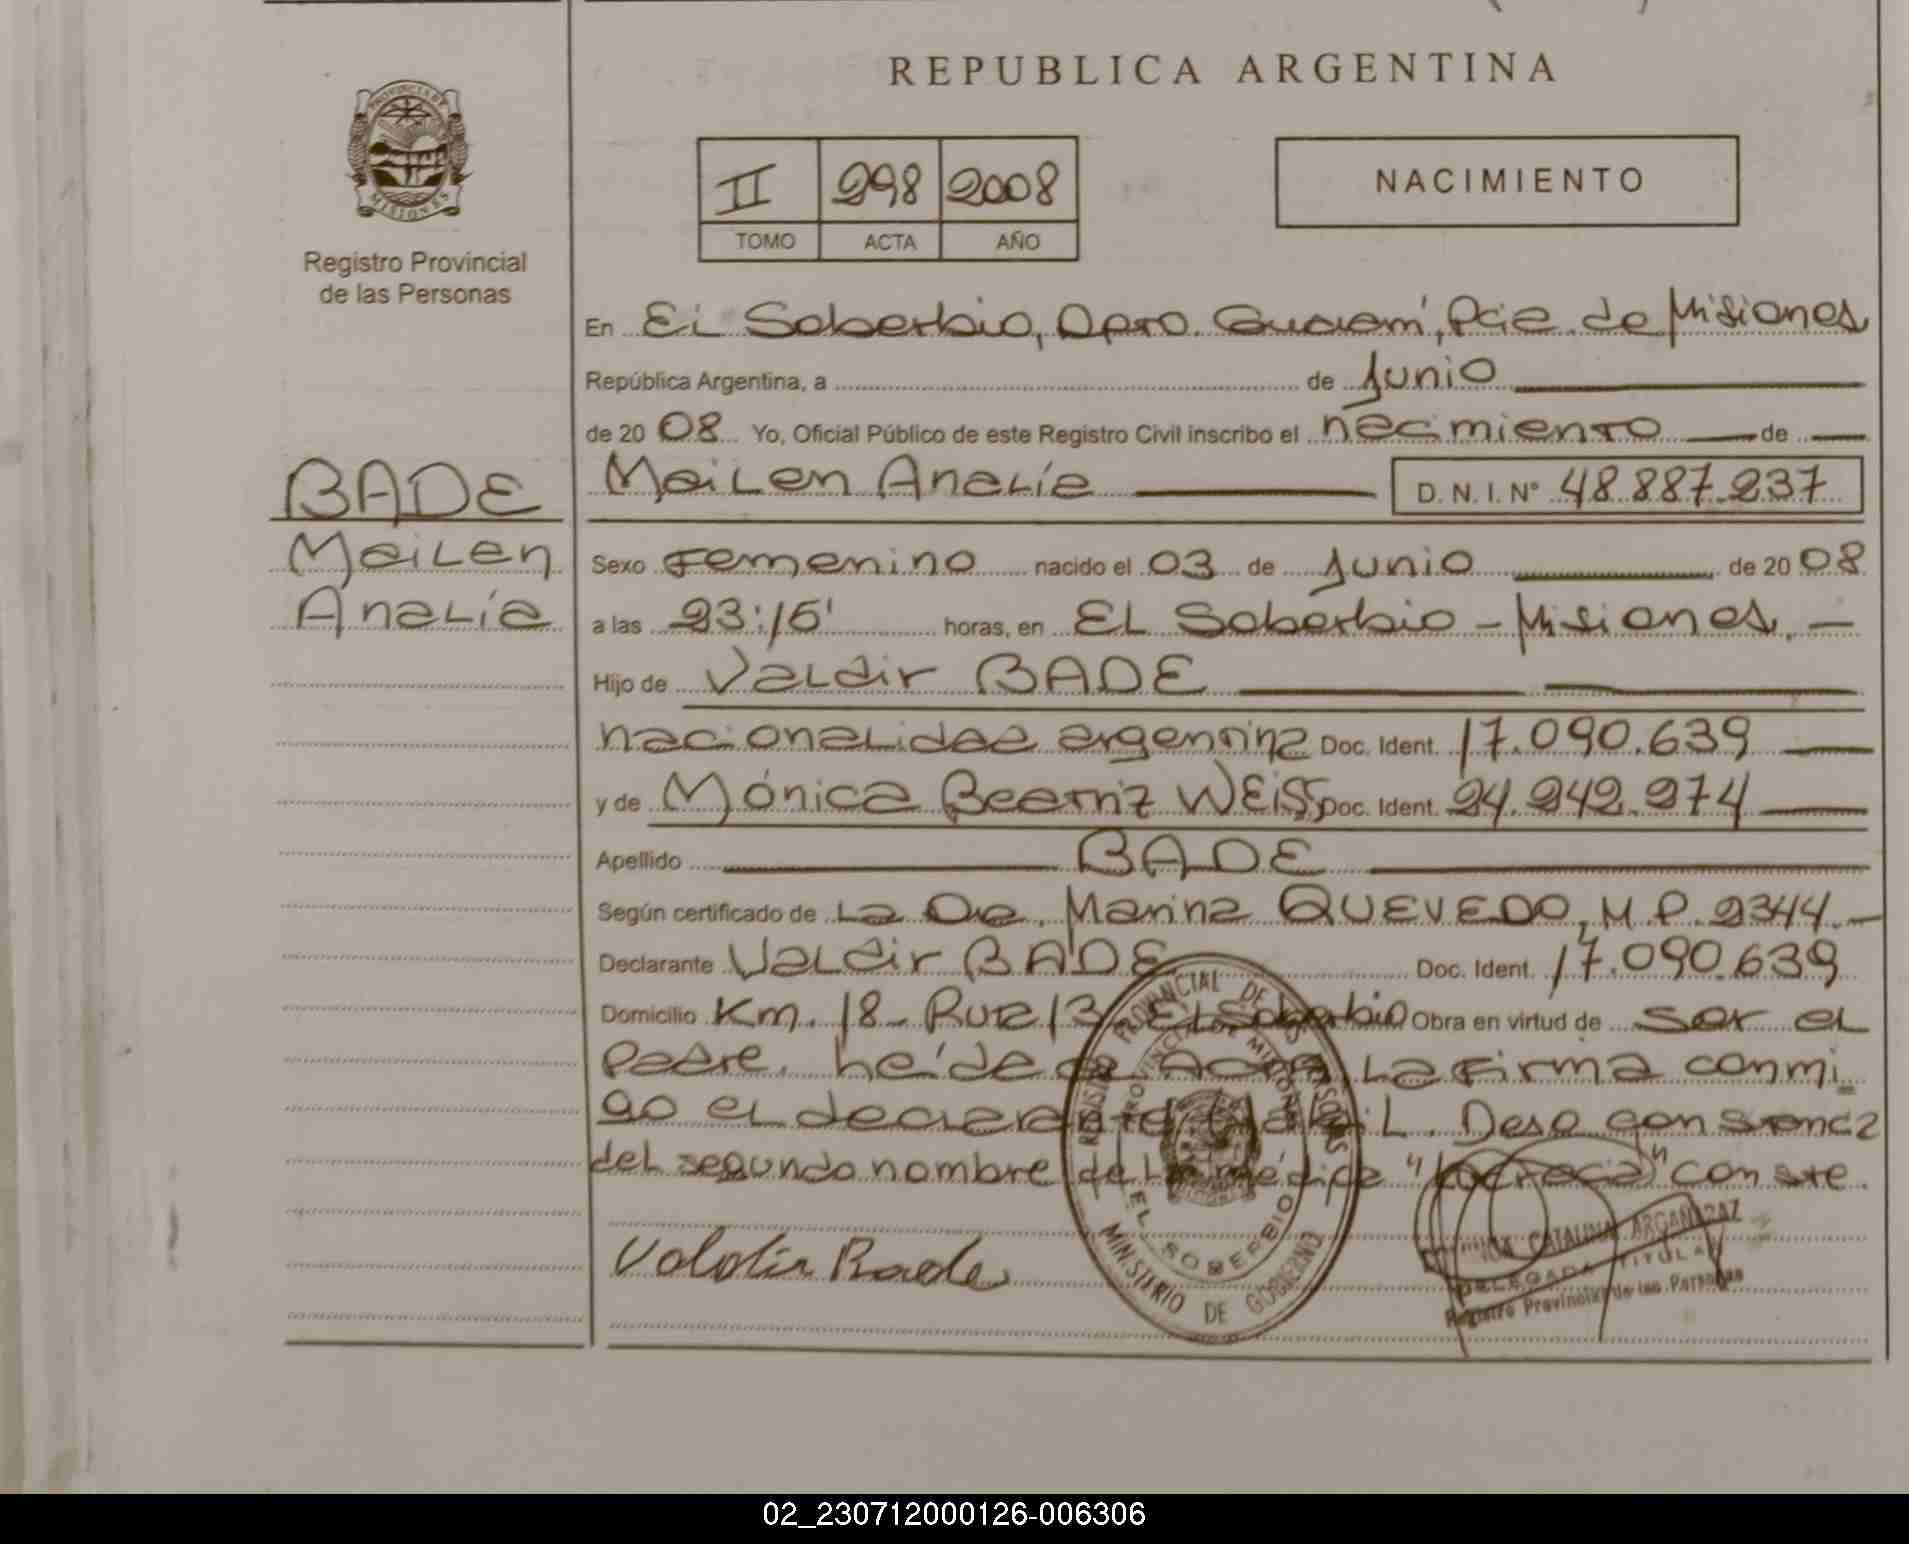 REPUBLICA ARGENTINA
PROVINCIA DE
MISIONES
Registro Provincial
de las Personas
II 298 2008
TOMO ACTA AÑO
NACIMIENTO
En El Soberbio, Dpto. Guaraní, Pcia de Misiones
República Argentina, a de Junio
de 2008 Yo, Oficial Público de este Registro Civil inscribo el nacimiento de
BADE
Mailen
Analía
Mailen Analía D.N.I. Nº 48.887.237
Sexo Femenino nacido el 03 de Junio de 2008
a las 23:15' horas, en El Soberbio - Misiones. -
Hijo de Valdir BADE
nacionalidad argentina Doc. Ident. 17.090.639
y de Mónica Beatriz WEISS Doc. Ident. 24.242.274
Apellido BADE
Según certificado de La Dra. Marina QUEVEDO, M.P. 2344. -
Declarante Valdir BADE Doc. Ident. 17.090.639
Domicilio Km. 18 - Ruta 13 El Soberbio Obra en virtud de ser el
Padre. heída el Acta La Firma conmi
go el declarante Hábil. Dese constancia
del segundo nombre de la médica "Lucrecia" conste.
Valdir Bade
REGISTRO PROVINCIAL DE LAS PERSONAS
PROVINCIA DE MISIONES
EL SOBERBIO
MINISTERIO DE GOBIERNO
CATALINA ARGAÑARAZ
DELEGADA TITULAR
Registro Provincial de las Personas
02_230712000126-006306